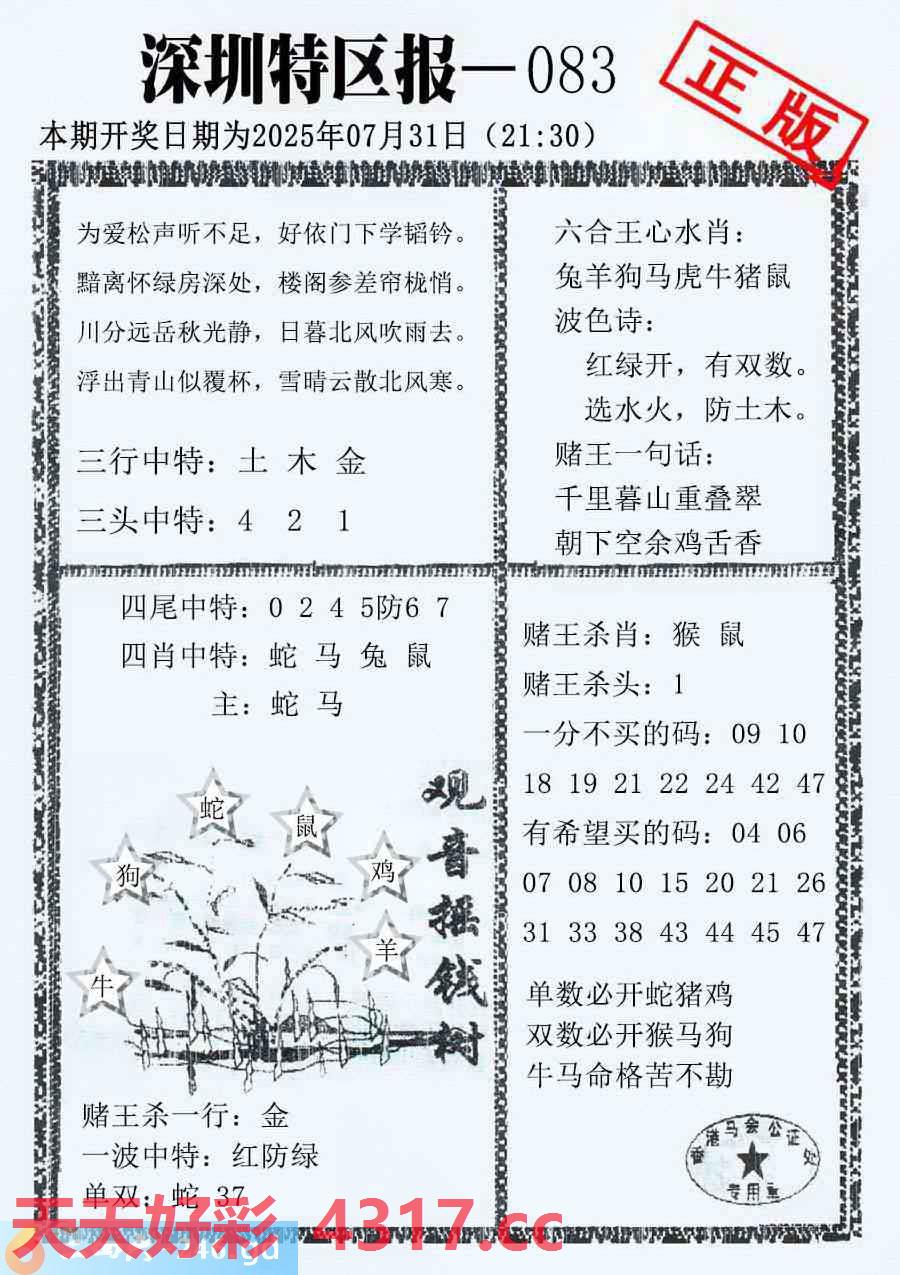 深圳特区报—083
正版
本期开奖日期为2025年07月31日（21:30）
为爱松声听不足，好依门下学韬钤。
黯离怀绿房深处，楼阁参差帘栊悄。
川分远岳秋光静，日暮北风吹雨去。
浮出青山似覆杯，雪晴云散北风寒。
三行中特：土 木 金
三头中特：4 2 1
六合王心水肖：
兔羊狗马虎牛猪鼠
波色诗：
红绿开，有双数。
选水火，防土木。
赌王一句话：
千里暮山重叠翠
朝下空余鸡舌香
四尾中特：0 2 4 5防6 7
四肖中特：蛇 马 兔 鼠
主：蛇 马
观音摇钱树
蛇
鼠
狗
鸡
羊
牛
赌王杀一行：金
一波中特：红防绿
单双：蛇 37
赌王杀肖：猴 鼠
赌王杀头：1
一分不买的码：09 10
18 19 21 22 24 42 47
有希望买的码：04 06
07 08 10 15 20 21 26
31 33 38 43 44 45 47
单数必开蛇猪鸡
双数必开猴马狗
牛马命格苦不勘
香港马会公证处
专用章
天天好彩 4317.cc